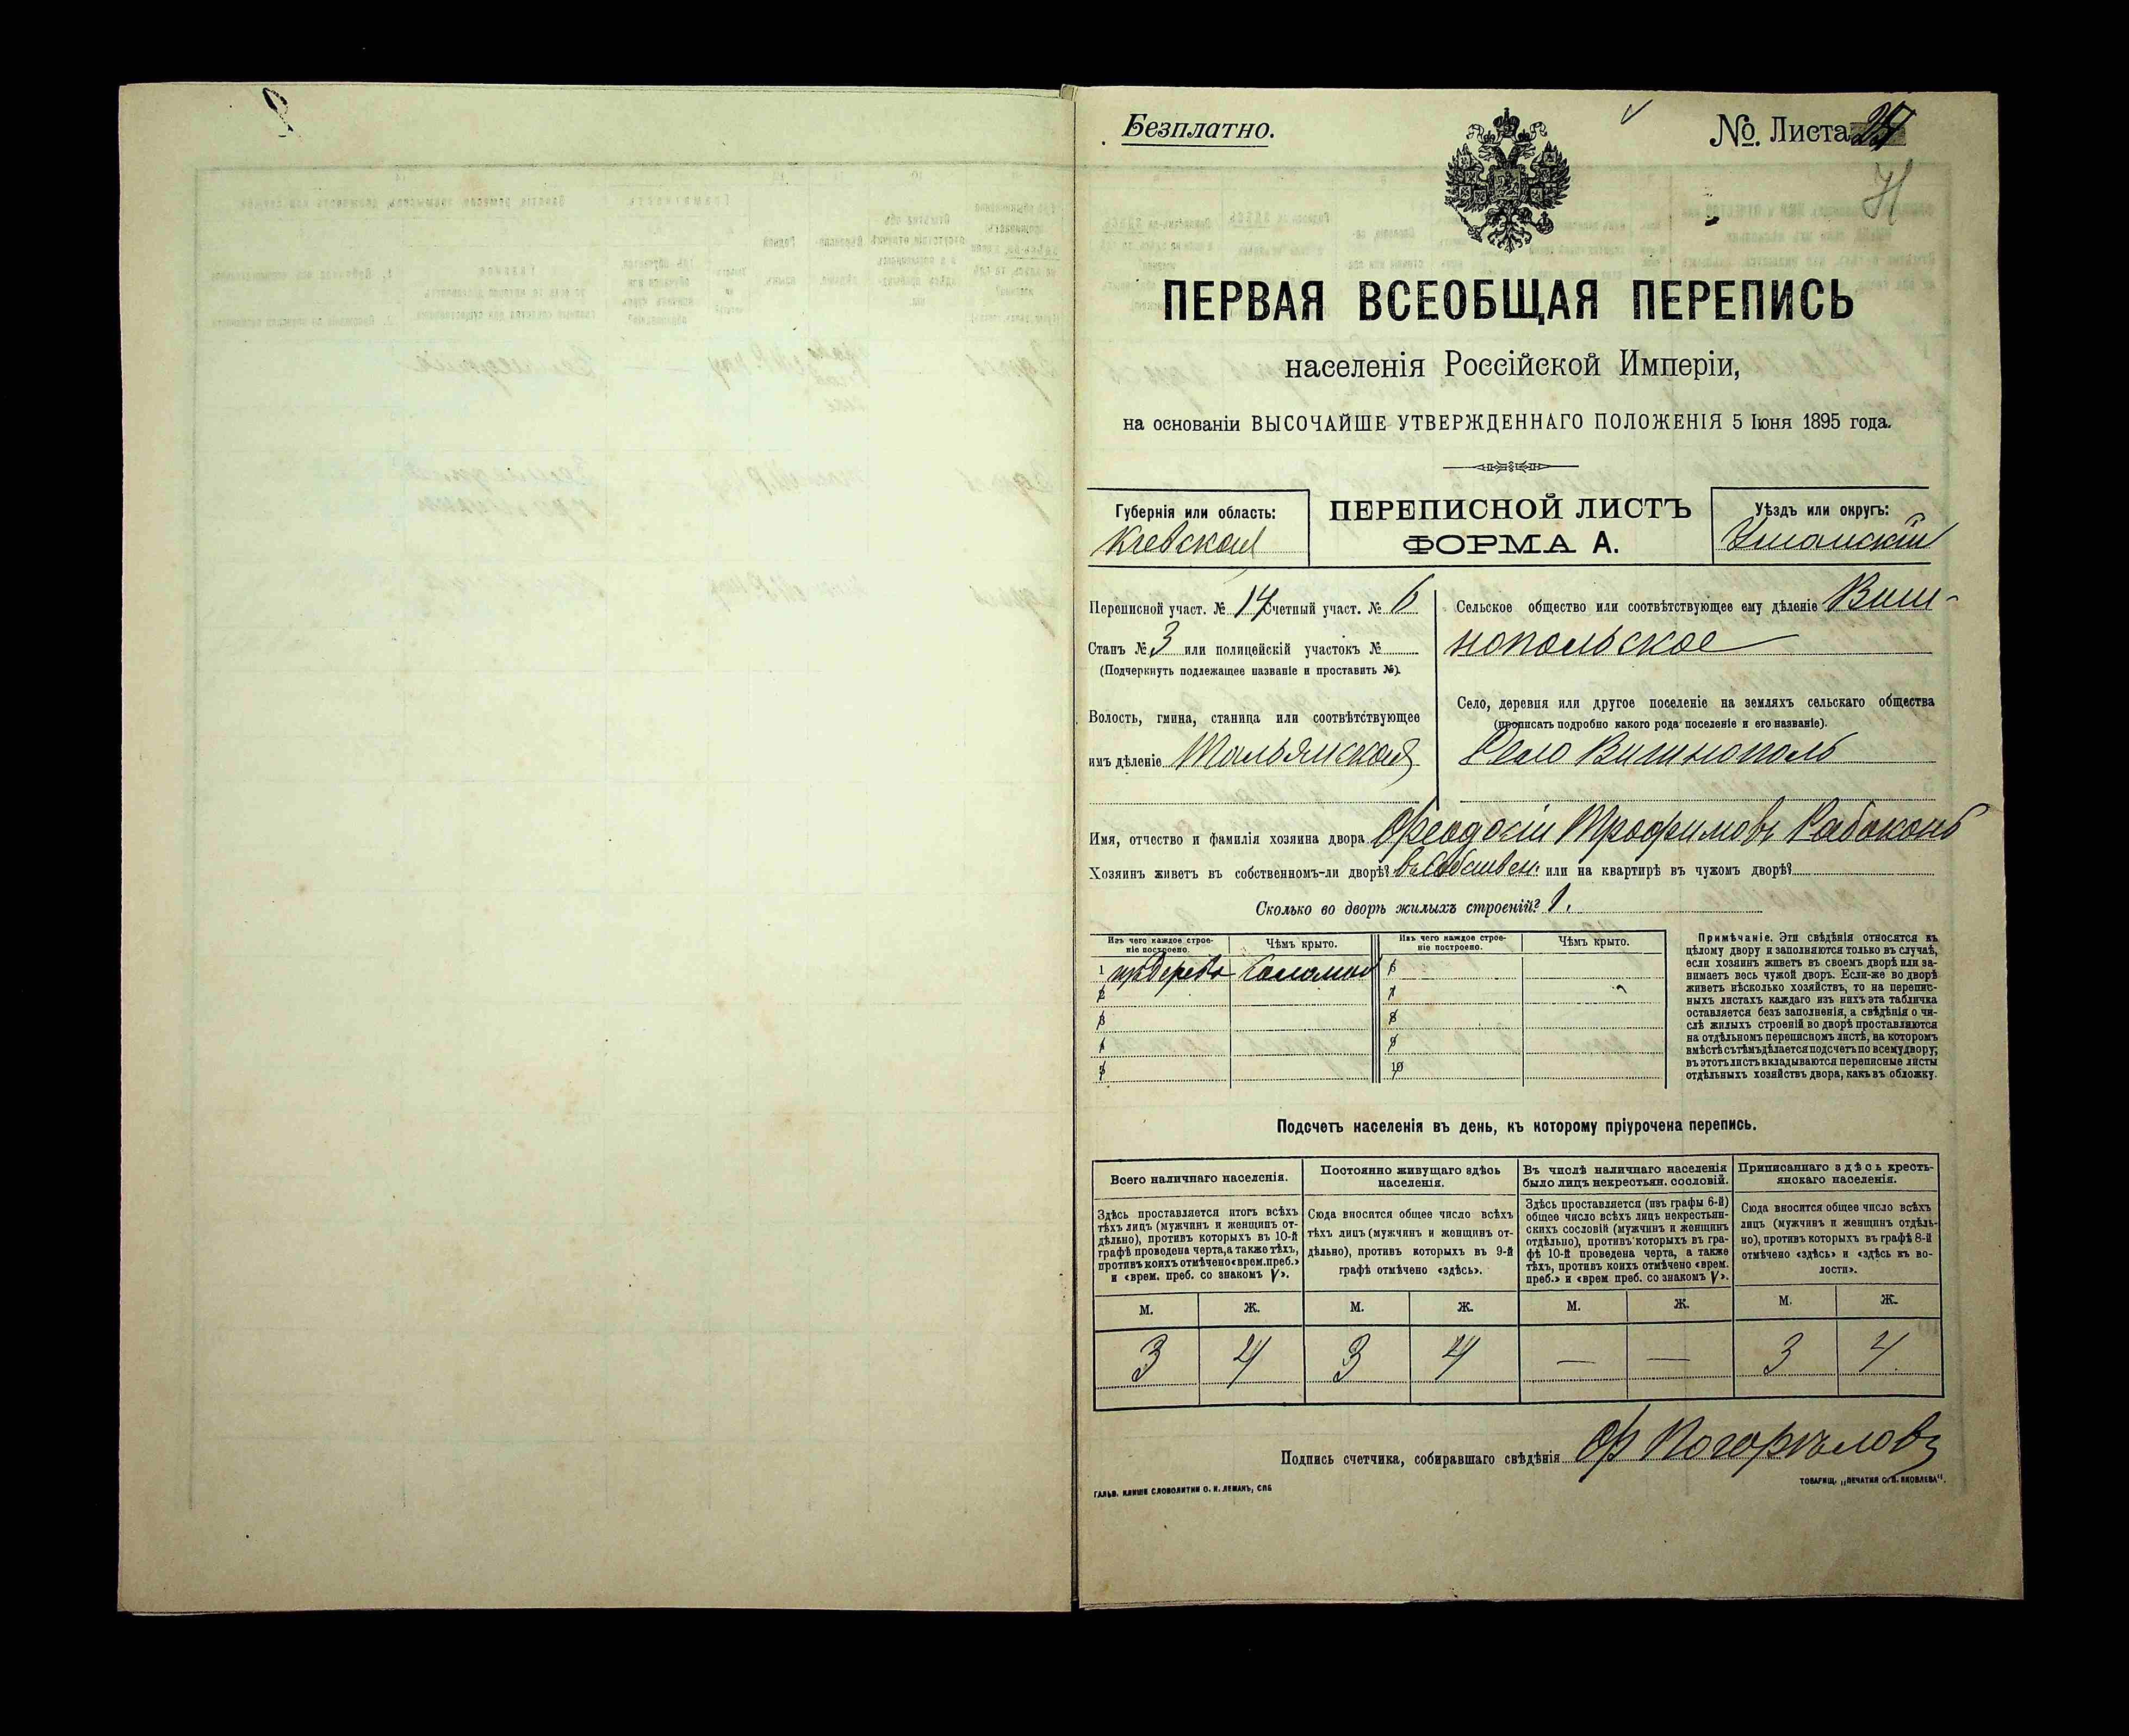 Безплатно.
№ Листа
ПЕРВАЯ ВСЕОБЩАЯ ПЕРЕПИСЬ
населенія Россійской Имперіи,
на основаніи ВЫСОЧАЙШЕ УТВЕРЖДЕННАГО ПОЛОЖЕНІЯ 5 Іюня 1895 года.
Губернія или область:
Кіевская
ПЕРЕПИСНОЙ ЛИСТЪ
ФОРМА А.
Уѣздъ или округъ:
Уманскій
Переписной участ. № 14 Счетный участ. № 6
Станъ № 3 или полицейскій участокъ №
(Подчеркнуть подлежащее названіе и проставить №).
Волость, гмина, станица или соотвѣтствующее
имъ дѣленіе Тальянская
Сельское общество или соотвѣтствующее ему дѣленіе Виш-
нопольское
Село, деревня или другое поселеніе на земляхъ сельскаго общества
(прописать подробно какого рода поселеніе и его названіе).
Село Вишнополь
Имя, отчество и фамилія хозяина двора Феодосій Трофимовъ Рабоконь
Хозяинъ живетъ въ собственномъ-ли дворѣ? въ собствен. или на квартирѣ въ чужомъ дворѣ?
Сколько во дворѣ жилыхъ строеній? 1.
Изъ чего каждое строе-
ніе построено.
Чѣмъ крыто.
Изъ чего каждое строе-
ніе построено.
Чѣмъ крыто.
1 изъ дерева Соломою 6
2 7
3 8
4 9
5 10
Примѣчаніе. Эти свѣдѣнія относятся къ
цѣлому двору и заполняются только въ случаѣ,
если хозяинъ живетъ въ своемъ дворѣ или за-
нимаетъ весь чужой дворъ. Если-же во дворѣ
живетъ нѣсколько хозяйствъ, то на перепис-
ныхъ листахъ каждаго изъ нихъ эта табличка
оставляется безъ заполненія, а свѣдѣнія о чи-
слѣ жилыхъ строеній во дворѣ проставляются
на отдѣльномъ переписномъ листѣ, на которомъ
вмѣстѣ съ тѣмъ дѣлается подсчетъ по всему двору;
въ этотъ листъ вкладываются переписные листы
отдѣльныхъ хозяйствъ двора, какъ въ обложку.
Подсчетъ населенія въ день, къ которому пріурочена перепись.
Всего наличнаго населенія.
Здѣсь проставляется итогъ всѣхъ
тѣхъ лицъ (мужчинъ и женщинъ от-
дѣльно), противъ которыхъ въ 10-й
графѣ проведена черта, а также тѣхъ,
противъ коихъ отмѣчено «врем. преб.»
и «врем. преб. со знакомъ V».
Постоянно живущаго здѣсь
населенія.
Сюда вносится общее число всѣхъ
тѣхъ лицъ (мужчинъ и женщинъ от-
дѣльно), противъ которыхъ въ 9-й
графѣ отмѣчено «здѣсь».
Въ числѣ наличнаго населенія
было лицъ некрестьян. сословій.
Здѣсь проставляется (изъ графы 6-й)
общее число всѣхъ лицъ некрестьян-
скихъ сословій (мужчинъ и женщинъ
отдѣльно), противъ которыхъ въ гра-
фѣ 10-й проведена черта, а также
тѣхъ, противъ коихъ отмѣчено «врем.
преб.» и «врем преб. со знакомъ V».
Приписаннаго здѣсь кресть-
янскаго населенія.
Сюда вносится общее число всѣхъ
лицъ (мужчинъ и женщинъ отдѣль-
но), противъ которыхъ въ графѣ 8-й
отмѣчено «здѣсь» и «здѣсь въ во-
лости».
М. Ж. М. Ж. М. Ж. М. Ж.
3 4 3 4 — — 3 4
Подпись счетчика, собиравшаго свѣдѣнія Ф Погорѣловъ
ГАЛЬВ. КЛИШЕ СЛОВОЛИТНИ О. И. ЛЕМАНЪ, СПБ
ТОВАРИЩ. „ПЕЧАТНЯ С. П. ЯКОВЛЕВА“.